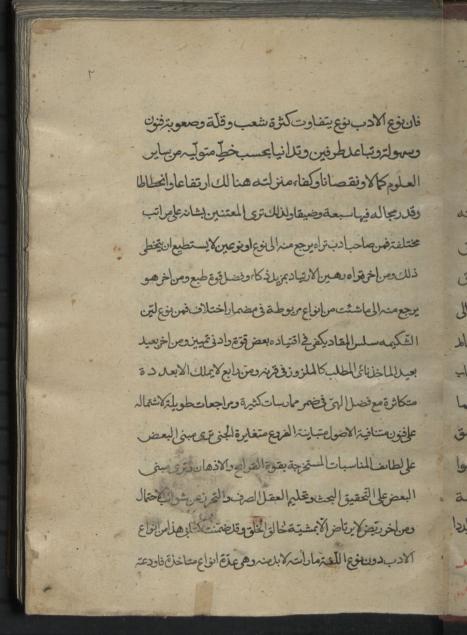 ٢
فان نوع الادب نوع يتفاوت كثرة شعب وقلة وصعوبة فنون
وسهولة وتباعد طرفين وتدانيا بحسب حظ متوليه من ساير
العلوم كمالا ونقصانا وكفاء منزلته هنالك ارتفاعا وانحطاطا
وقدر مجاله فيها سعة وضيقا ولذلك ترى المعتنين بشانه على مراتب
مختلفة فمن صاحب ادب تراه يرجع منه الى نوع او نوعين لا يستطيع ان يتخطى
ذلك ومن اخر تراه رهين الارتياد بمزيد ذكاء وفضل قوة طبع ومن اخر هو
يرجع منه الى ما شئت من انواع مربوطة فى مضمار اختلاف فمن نوع لين
الشكيمه سلس المقاد يكفى فى اقتياده بعض قوة وادنى تمييز ومن اخر بعيد
بعيد الماخذ نائى المطلب كالملزوز فى قرنه ومن رابع لا يملك الا بعدد
متكاثرة مع فضل الهى فى ضمن ممارسات كثيرة ومراجعات طويلة لاشتماله
على فنون متنافية الاصول متباينة الفروع متغايرة الجنى ترى مبنى البعض
على لطائف المناسبات المستخرجة بقوة القرائح والاذهان وترى مبنى
البعض على التحقيق البحت وتحكيم العقل الصرف والتحرز عن شوائب احتمال
ومن اخر ريض لا يرتاض الا بمشيئة خالق الخلق وقد ضمنت كتابى هذا من انواع
الادب دون نوع اللغة ما رايته لا بد منه وهى عدة انواع متاخذة فاودعته